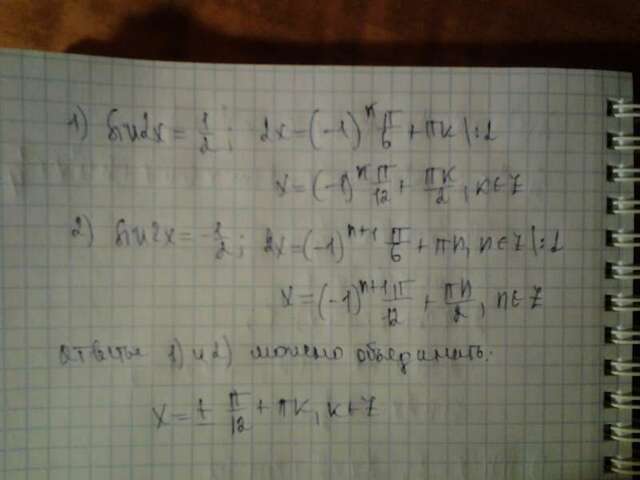 1) sin2x = 1/2 ; 2x = (-1)^n π/6 + πк |:2
x = (-1)^n π/12 + πк/2, n∈Z
2) sin2x = -1/2 ; 2x = (-1)^(n+1) π/6 + πn, n∈Z |:2
x = (-1)^(n+1) π/12 + πn/2, n∈Z
ответы 1) и 2) можно объединить:
x = ± π/12 + πк, к+Z